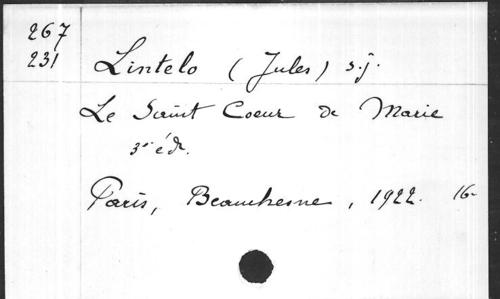 267
231
Lintelo (Jules) s.j.
Le Saint Coeur de Marie
3e éd.
Paris, Beauchesne, 1922. 16-